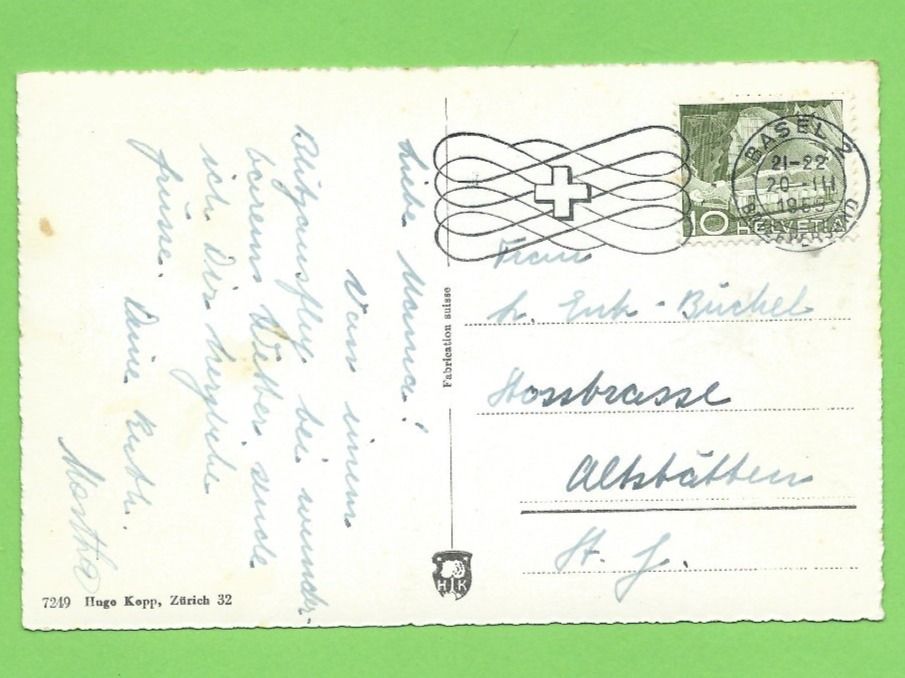 Liebe Mamma!
Vom einen
Blitzausflug bei wunder-
barem Wetter sende
ich Dir herzliche
Grüsse. Deine Ruth.
Martha
Fabrication suisse
BASEL 2
21-22
20-III
BRIEFVERSAND
10 HELVETIA
Frau
Büchel
Stossstrasse
Altstätten
St. G.
H K
7249 Hugo Kopp, Zürich 32